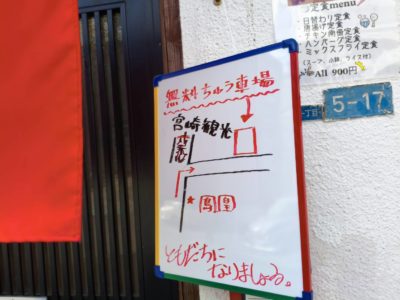 定食menu
・日替わり定食
・唐揚げ定食
・チキン南蛮定食
・ハンバーグ定食
・ミックスフライ定食
(スープ、小鉢、ライス付)
All 900円
丁目
5-17
無料ちゅう車場
宮崎観光
ともだちに
なりましょう。